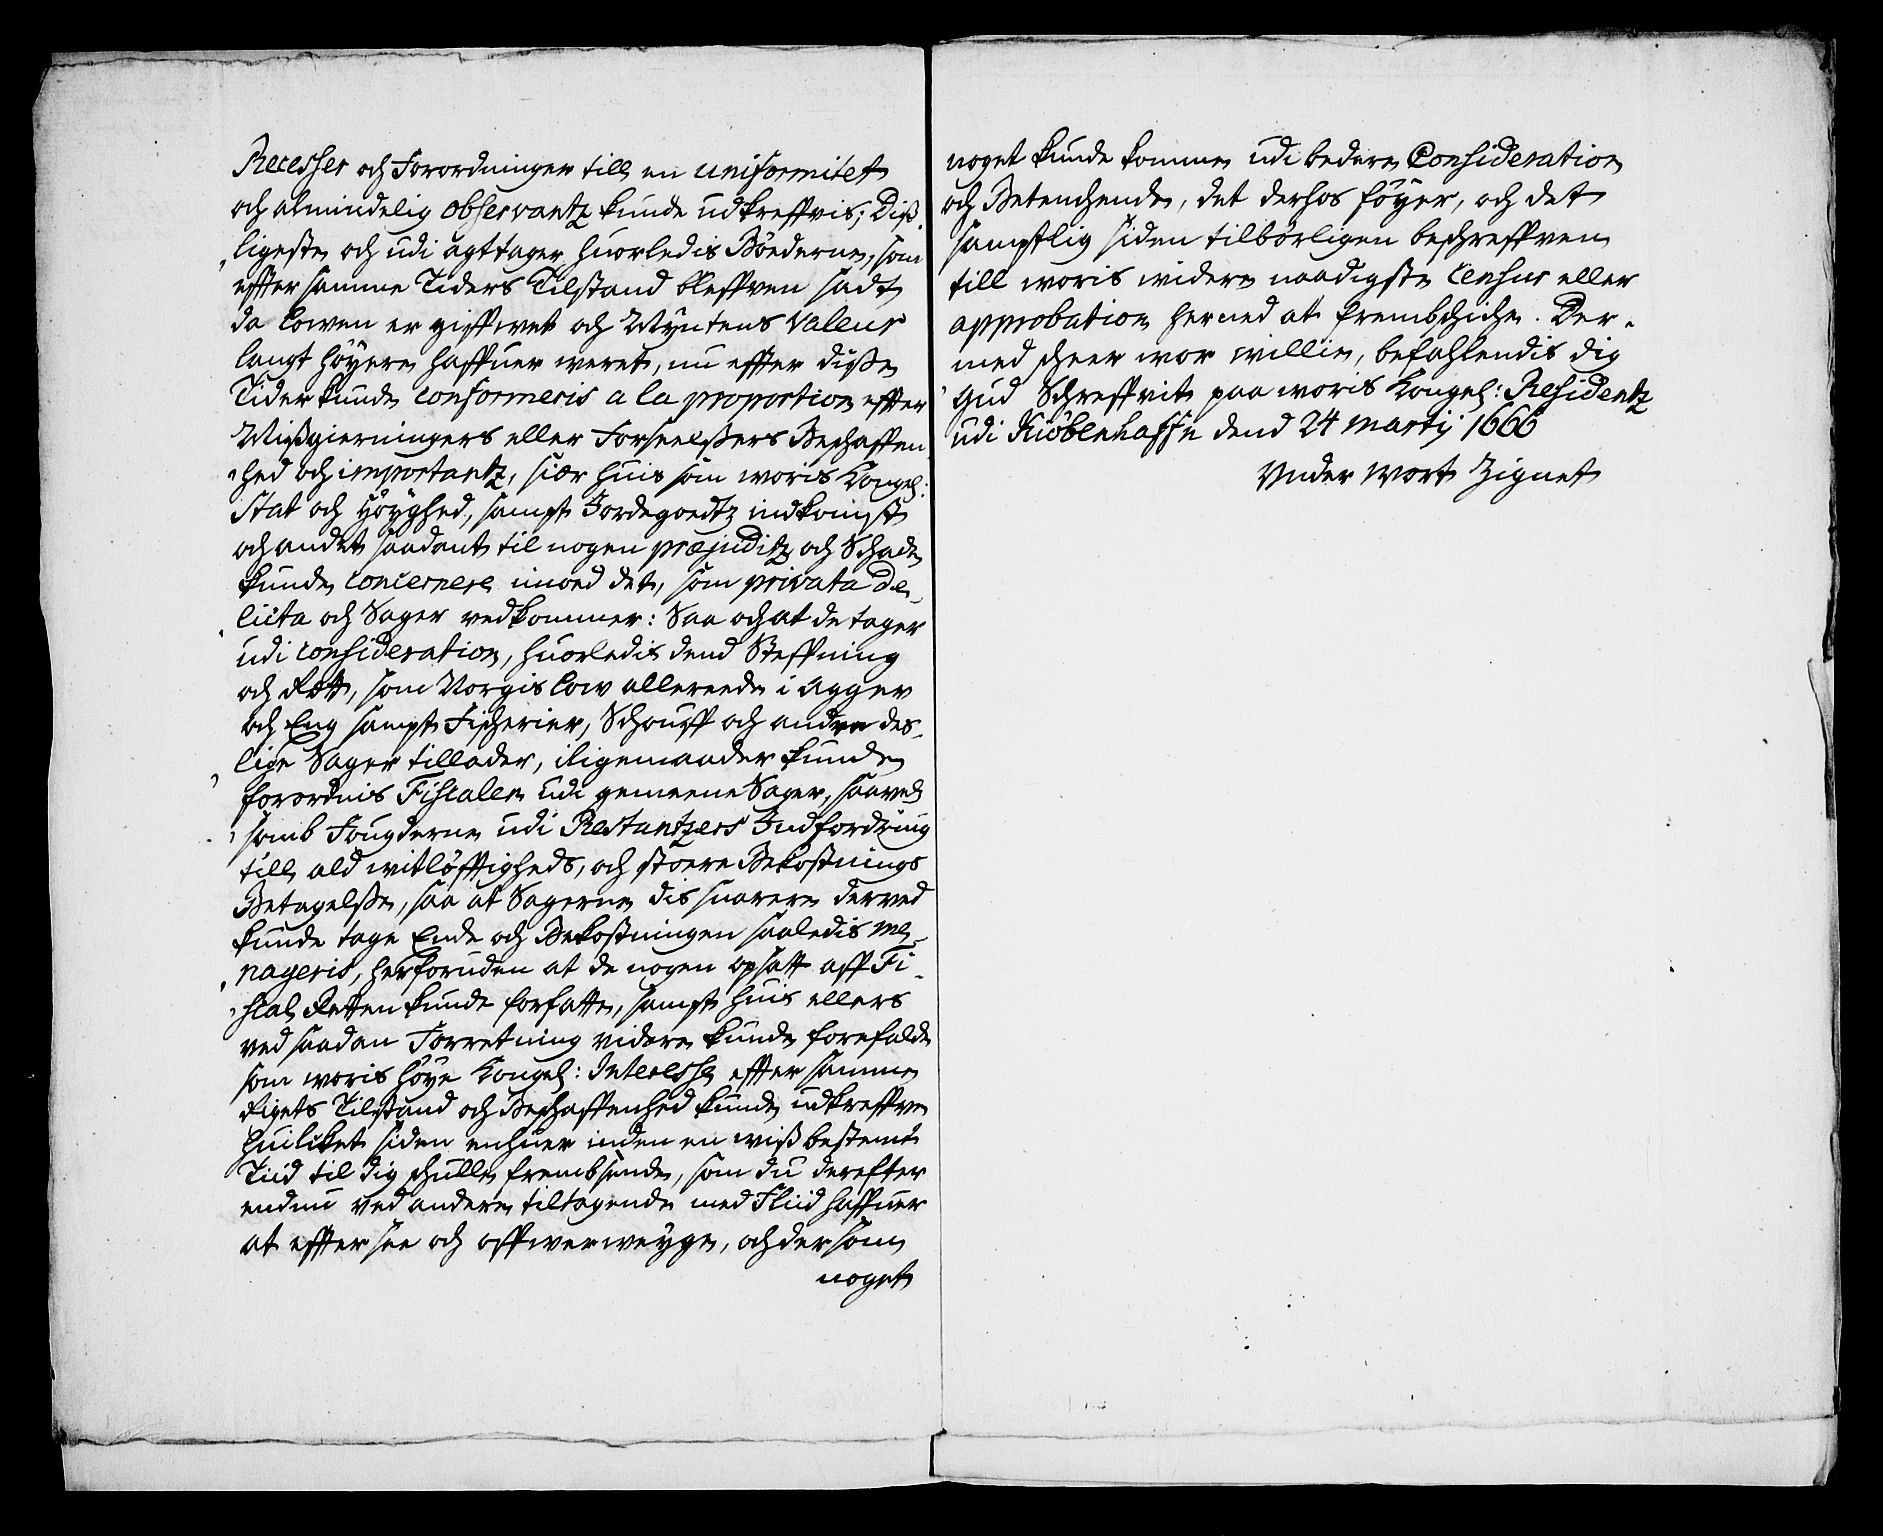 Recesser och Forordninger till en uniformitet
och almindelig observantz kunde udkreffvis; Diß-
ligeste och udi agttager huorledis Böederne, som
effter samme Tiders Tilstand bleffven sadt
da Lowen er giffwet och Myntens Valeur
langt höyere haffuer weret, nu effter disse
Tider kunde conformeris a la proportion effter
Mißgierningers eller Forseelßers Beschaffen-
hed och importantz, siær huis som woris Kongel:
Stat och Höyghed, sampt Jordegoedtz indkomst
och andet saadant til nogen præjuditz och Schade
kunde concernere imod det, som privata De-
licta och Sager vedkommer: Saa och at de tager
udi consideration, huorledis dend Steffning
och Rett, som Norgis Low allereede i Agger
och Eng sampt Fischerier, Schouff och andre des-
lige Sager tillader, iligemaader kunde
forordnis Fiscalen udi gemeene Sager, saavel
somb Fougderne udi Restantzers Indfordring
till ald witlöfftigheds, och stoere Bekostnings
Betagelße, saa at Sagerne dis snarere derved
kunde tage Ende och Bekostningen saaledis me-
nageris, herforuden at de nogen opsatt aff Fi-
scal Retten kunde forfatte, sampt huis ellers
ved saadan Forretning videre kunde forefalde
som woris höye Kongel: Interesse effter samme
Rigets Tilstand och Beschaffenhed kunde udkreffve
huilcket siden enhuer inden en wiß bestemt
Tiid til dig schulle frembsende, som du derefter
endnu ved andere tiltagende med Fliid haffuer
at effter see och offwerweyge, och dersom
noget
noget kunde komme udi bedere Consideration
och Betenchende, det derhos föyer, och det
samptlig siden tilbörligen beschreffven
till woris widere naadigste Censur eller
approbation herned at frembschiche. Der-
med scheer wor willie, befahlendis dig
Gud Schreffvit paa woris Kongel: Residentz
udi Kiöbenhaffn dend 24 martij 1666
Under wort Zignet